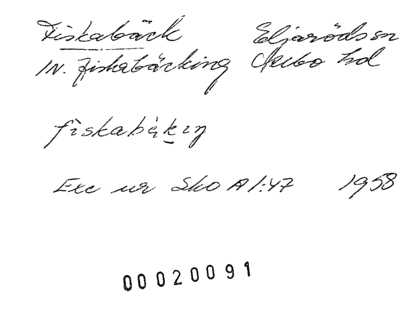 Fiskabäck Eljaröds sn
IN. fiskabäcking Albo hd
fiskabäkiŋ
Exc ur Sko A1:47 1958
00020091